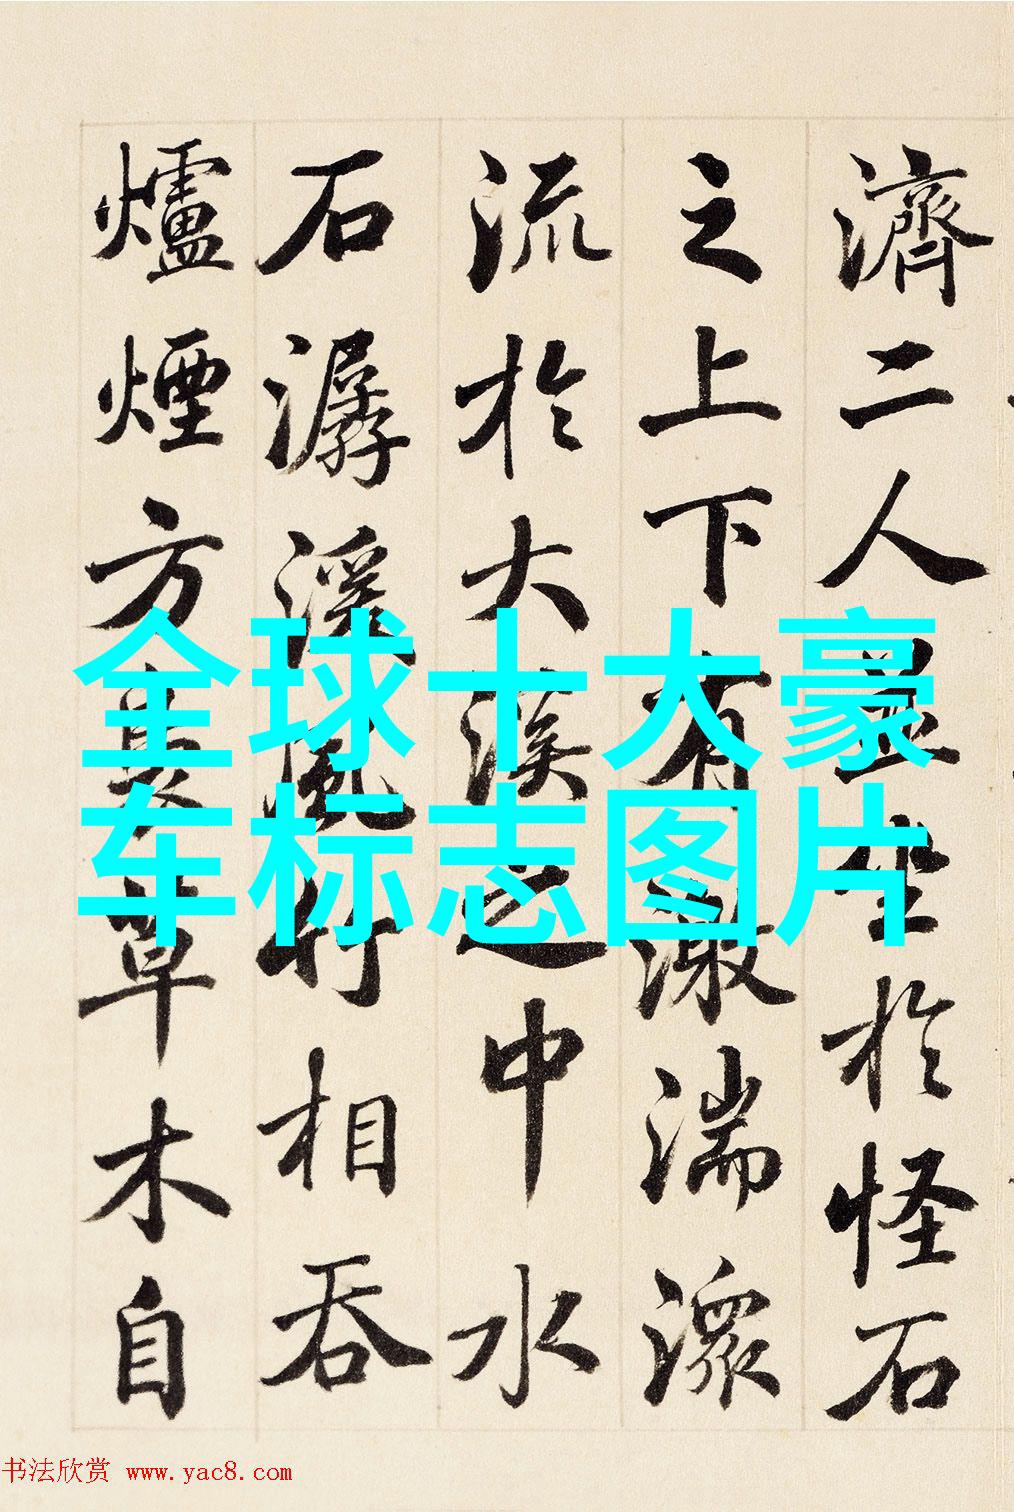 濟二人並坐於怪石
之上下有激湍潨
流於大溪之中水
石潺湲風竹相吞
爐煙方裊草木自
全球十大豪
车标志图片
书法欣赏 www.yac8.com